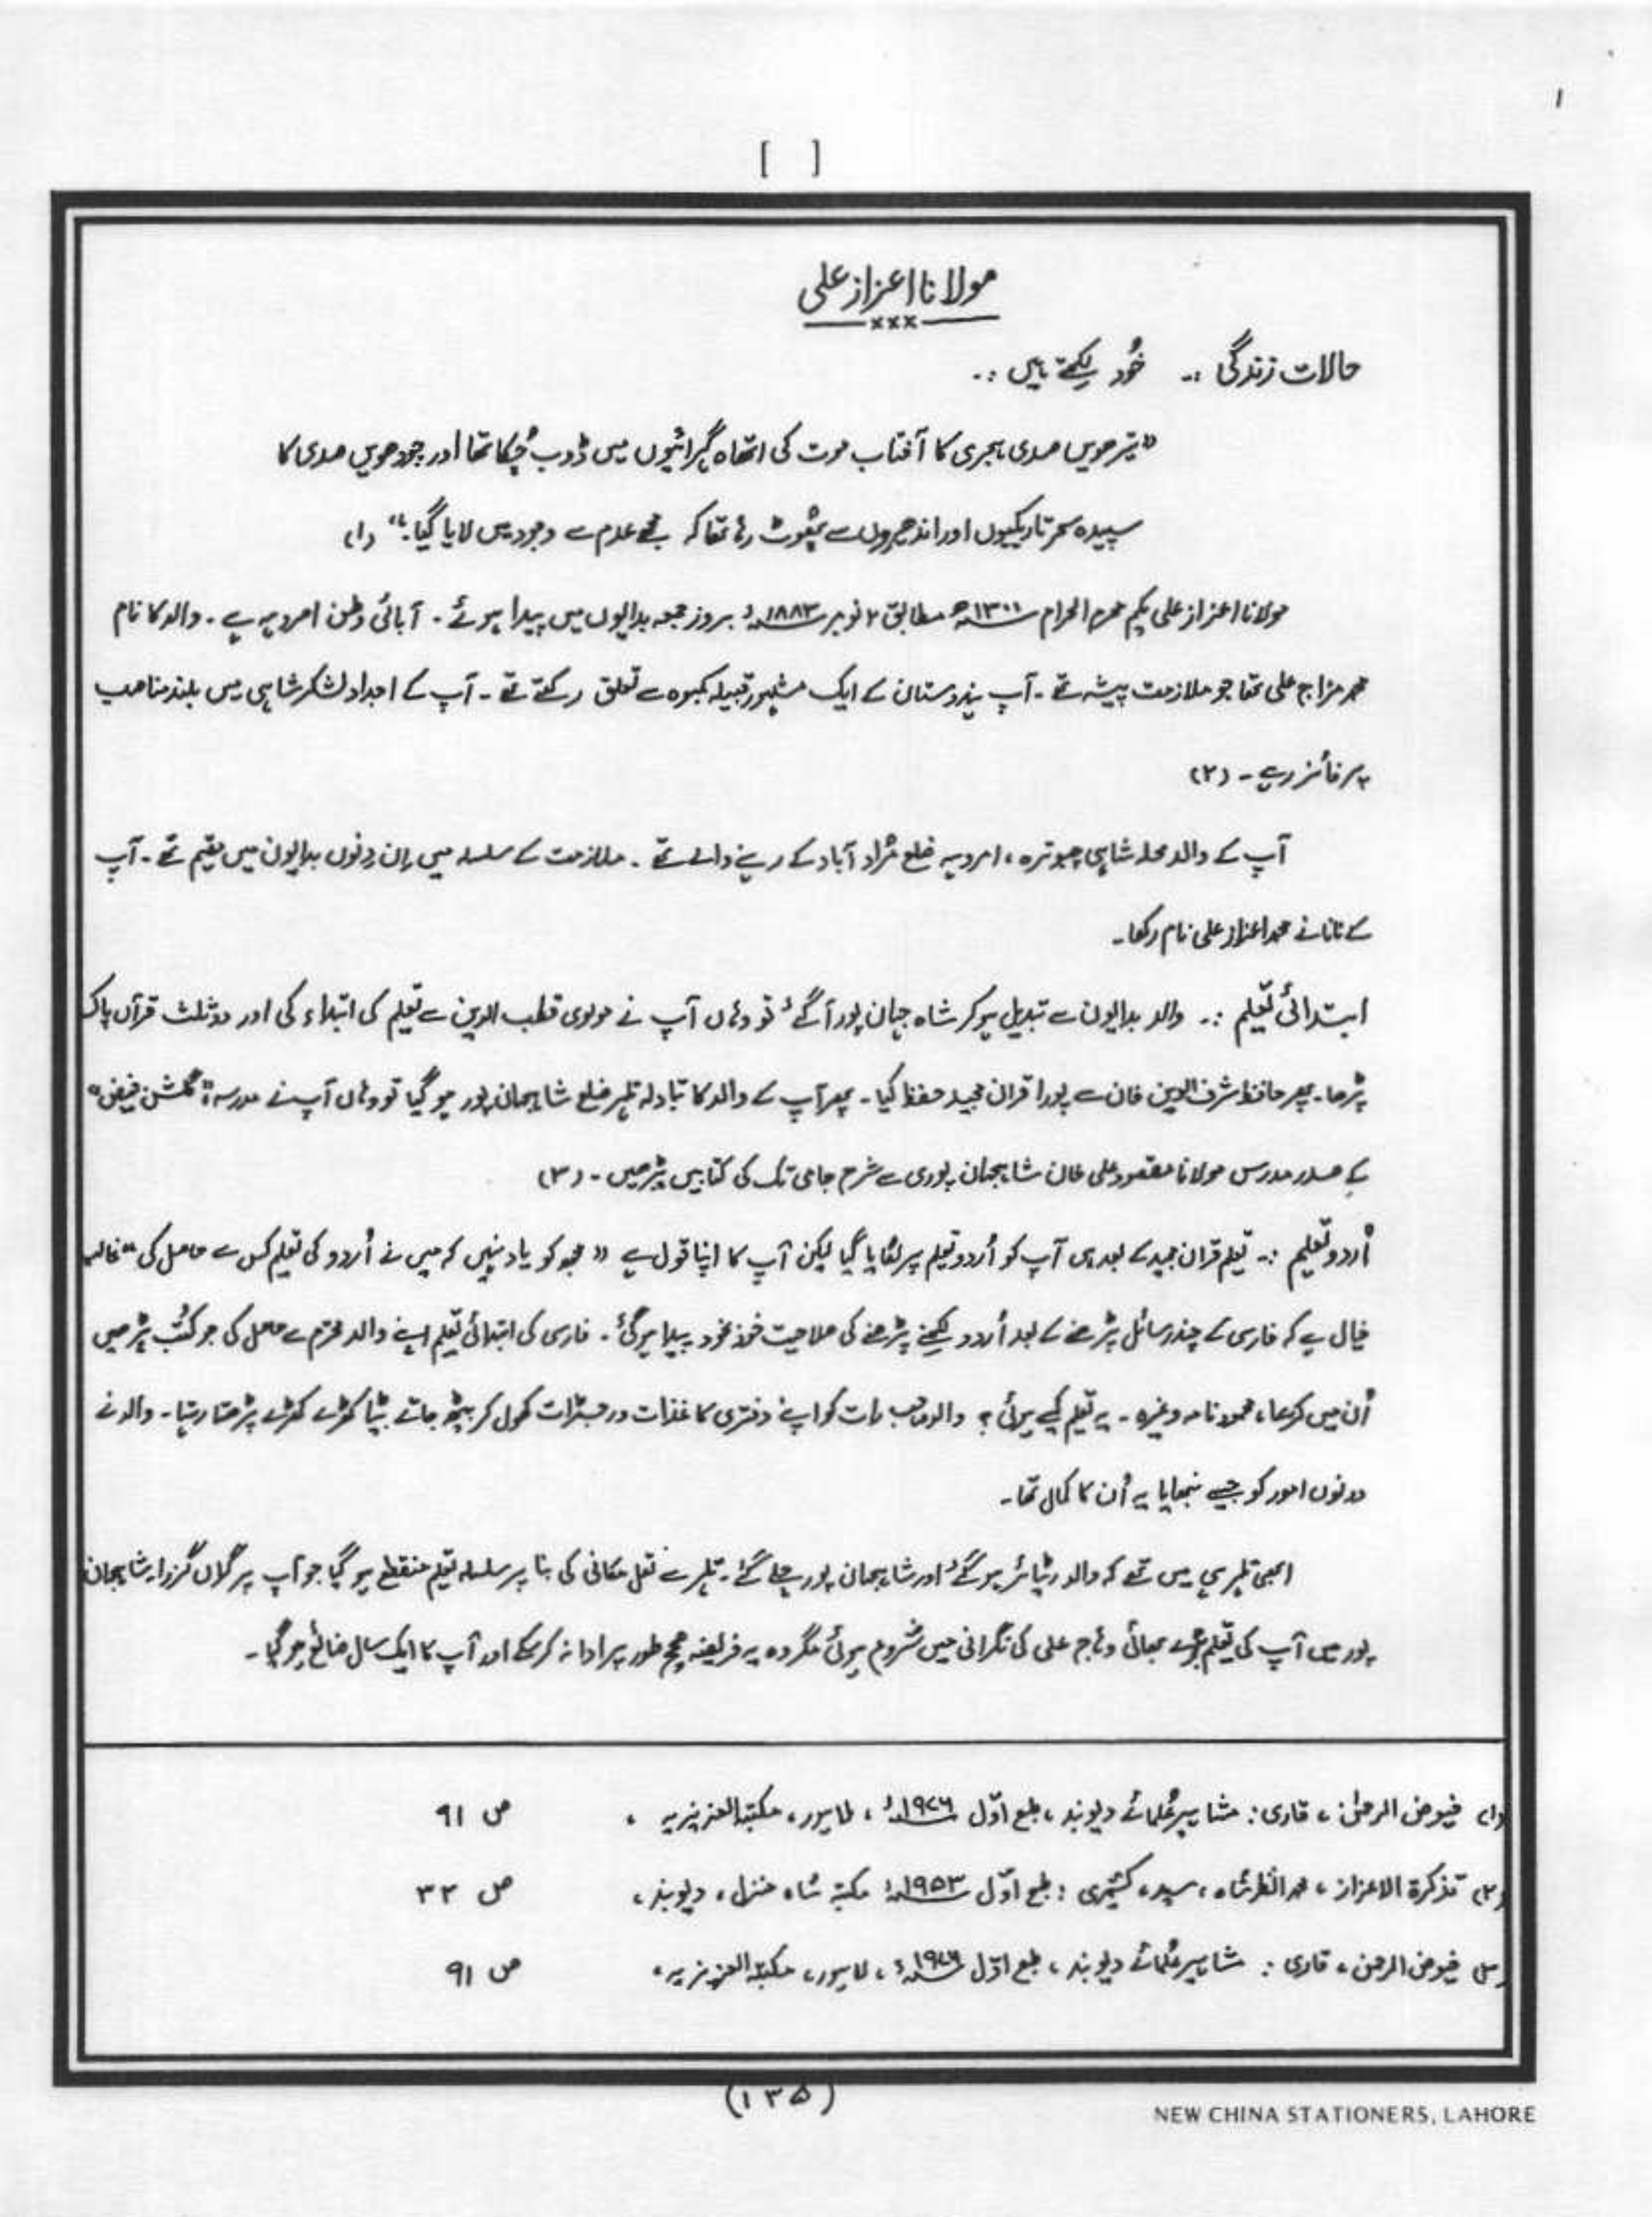 ۱
[ ]
مولانا اعزاز علی
×××
حالات زندگی :۔ خُود لکھتے ہیں :۔
"تیرھویں صدی ہجری کا آفتاب موت کی اتھاہ گہرائیوں میں ڈوب چُکا تھا اور چودھویں صدی کا
سپیدہ سحر تاریکیوں اور اندھیروں سے پھُوٹ رہا تھا کہ مجھے عدم سے وجود میں لایا گیا۔" (۱)
مولانا اعزاز علی یکم محرم الحرام ۱۳۰۱ھ مطابق ۲ نومبر ۱۸۸۳ء بروز جمعہ بدایوں میں پیدا ہوئے ۔ آبائی وطن امروہہ ہے ۔ والد کا نام
محمد مزاج علی تھا جو ملازمت پیشہ تھے ۔ آپ ہندوستان کے ایک مشہور قبیلہ کمبوہ سے تعلق رکھتے تھے ۔ آپ کے اجداد لشکر شاہی میں بلند مناصب
پر فائز رہے ۔ (۲)
آپ کے والد محلہ شاہی چبوترہ ، امروہہ ضلع مُراد آباد کے رہنے والے تھے ۔ ملازمت کے سلسلہ میں اِن دِنوں بدایون میں مقیم تھے ۔ آپ
کے نانا نے محمد اعزاز علی نام رکھا ۔
ابتدائی تعلیم :۔ والد بدایون سے تبدیل ہو کر شاہ جہان پور آ گئے تو وہاں آپ نے مولوی قطب الدین سے تعلیم کی ابتداء کی اور دو ثلث قرآن پاک
پڑھا ۔ پھر حافظ شرف الدین خان سے پورا قران مجید حفظ کیا ۔ پھر آپ کے والد کا تبادلہ تلہر ضلع شاہجہان پور ہو گیا تو وہاں آپ نے مدرسہ "گلشن فیض"
کے صدر مدرس مولانا مقصود علی خان شاہجہان پوری سے شرح جامی تک کی کتابیں پڑھیں ۔ (۳)
اُردو تعلیم :۔ تعلیم قران مجید کے بعد ہی آپ کو اُردو تعلیم پر لگایا گیا لیکن آپ کا اپنا قول ہے "مجھ کو یاد نہیں کہ میں نے اُردو کی تعلیم کس سے حاصل کی" غالب
خیال ہے کہ فارسی کے چند رسائل پڑھنے کے بعد اُردو لکھنے پڑھنے کی صلاحیت خود بخود پیدا ہو گئی ۔ فارسی کی ابتدائی تعلیم اپنے والد محترم سے حاصل کی جو کُتب پڑھیں
اُن میں کریما ، محمود نامہ وغیرہ ۔ یہ تعلیم کیسے ہوئی ؟ والد صاحب رات کو اپنے دفتری کاغذات و رجسٹرات کھول کر بیٹھ جاتے بیٹا کھڑے کھڑے پڑھتا رہتا ۔ والد نے
دونوں امور کو جیسے نبھایا یہ اُن کا کمال تھا ۔
ابھی تلہر ہی میں تھے کہ والد ریٹائر ہو گئے اور شاہجہان پور چلے گئے ۔ تلہر سے نقل مکانی کی بنا پر سلسلہ تعلیم منقطع ہو گیا جو آپ پر گراں گزرا ۔ شاہجہان
پور میں آپ کی تعلیم بڑے بھائی وہاج علی کی نگرانی میں شروع ہوئی مگر وہ یہ فریضہ صحیح طور پر ادا نہ کر سکے اور آپ کا ایک سال ضائع ہو گیا ۔
(۱) فیوض الرحمٰن ، قاری : مشاہیر عُلمائے دیوبند ، طبع اوّل ۱۹۷۶ء ، لاہور ، مکتبۃ العزیزیہ ، ص ۹۱
(۲) تذکرۃ الاعزاز ، محمد انظر شاہ ، سید ، کشمیری : طبع اوّل ۱۹۵۳ء مکتبہ شاہ منزل ، دیوبند ، ص ۳۳
(۳) فیوض الرحمن ، قاری : مشاہیر عُلمائے دیوبند ، طبع اوّل ۱۹۷۶ء ، لاہور ، مکتبۃ العزیزیہ ، ص ۹۱
(۱۳۵)
NEW CHINA STATIONERS, LAHORE